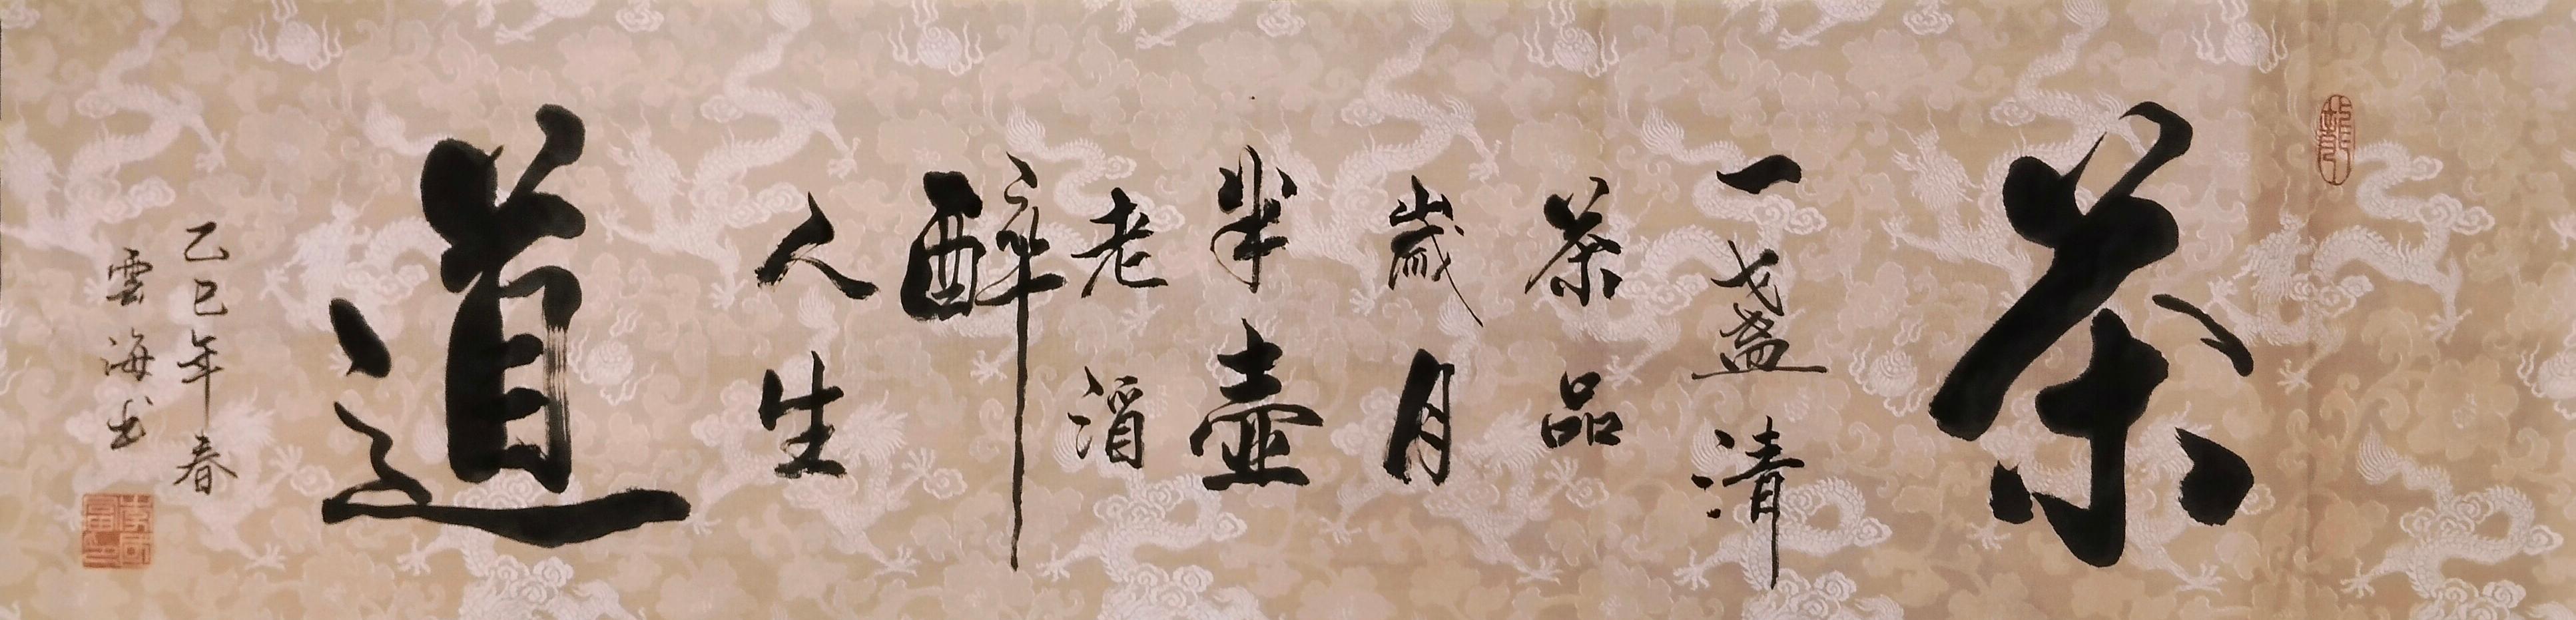 茶
一盞清
茶品
歲月
半壺
老酒
醉
人生
道
乙巳年春
雲海书